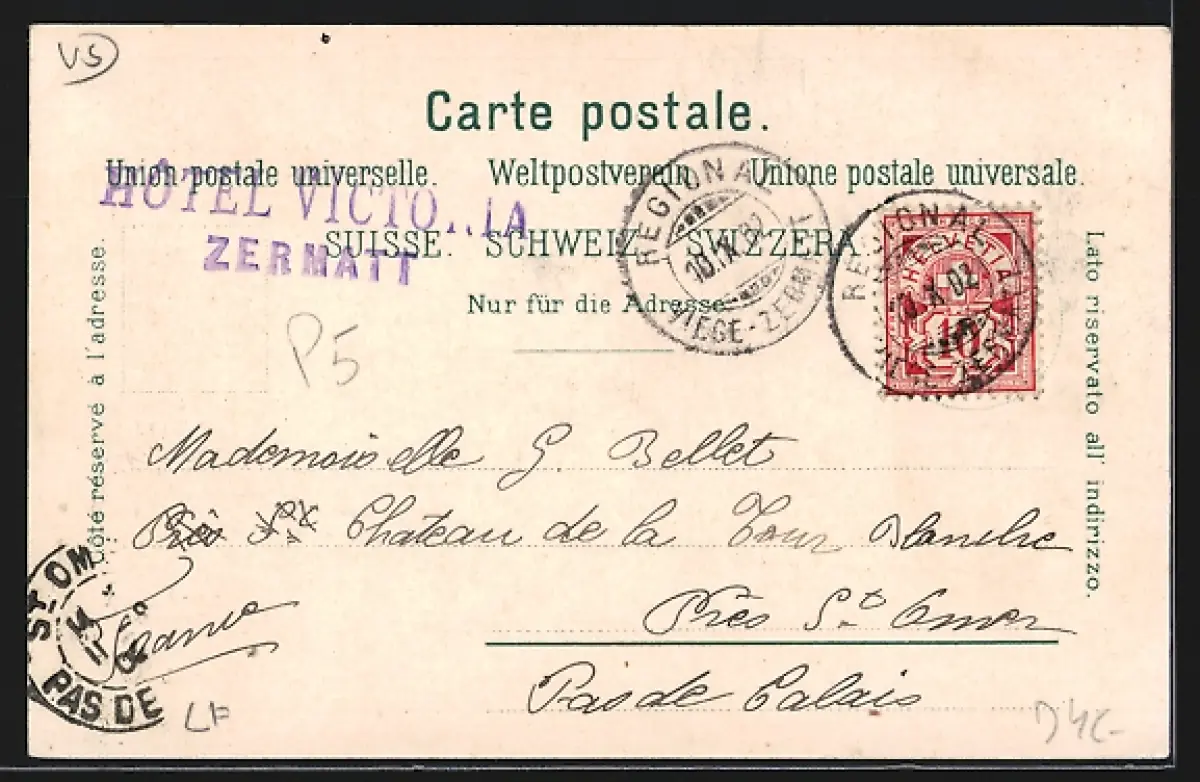 VS
Carte postale.
Union postale universelle. Weltpostverein Unione postale universale.
HÔTEL VICTORIA
ZERMATT
SUISSE. SCHWEIZ. SVIZZERA.
Nur für die Adresse.
REGIONAL
VIEGE-ZERM
REGIONAL
HELVETIA
10
Côté réservé à l'adresse.
Lato riservato all' indirizzo.
P5
Mademoiselle G. Bellet
Près St Chateau de la Tour Blanche
Près St Omer
France
Pas de Calais
ST OM
PAS DE
LF